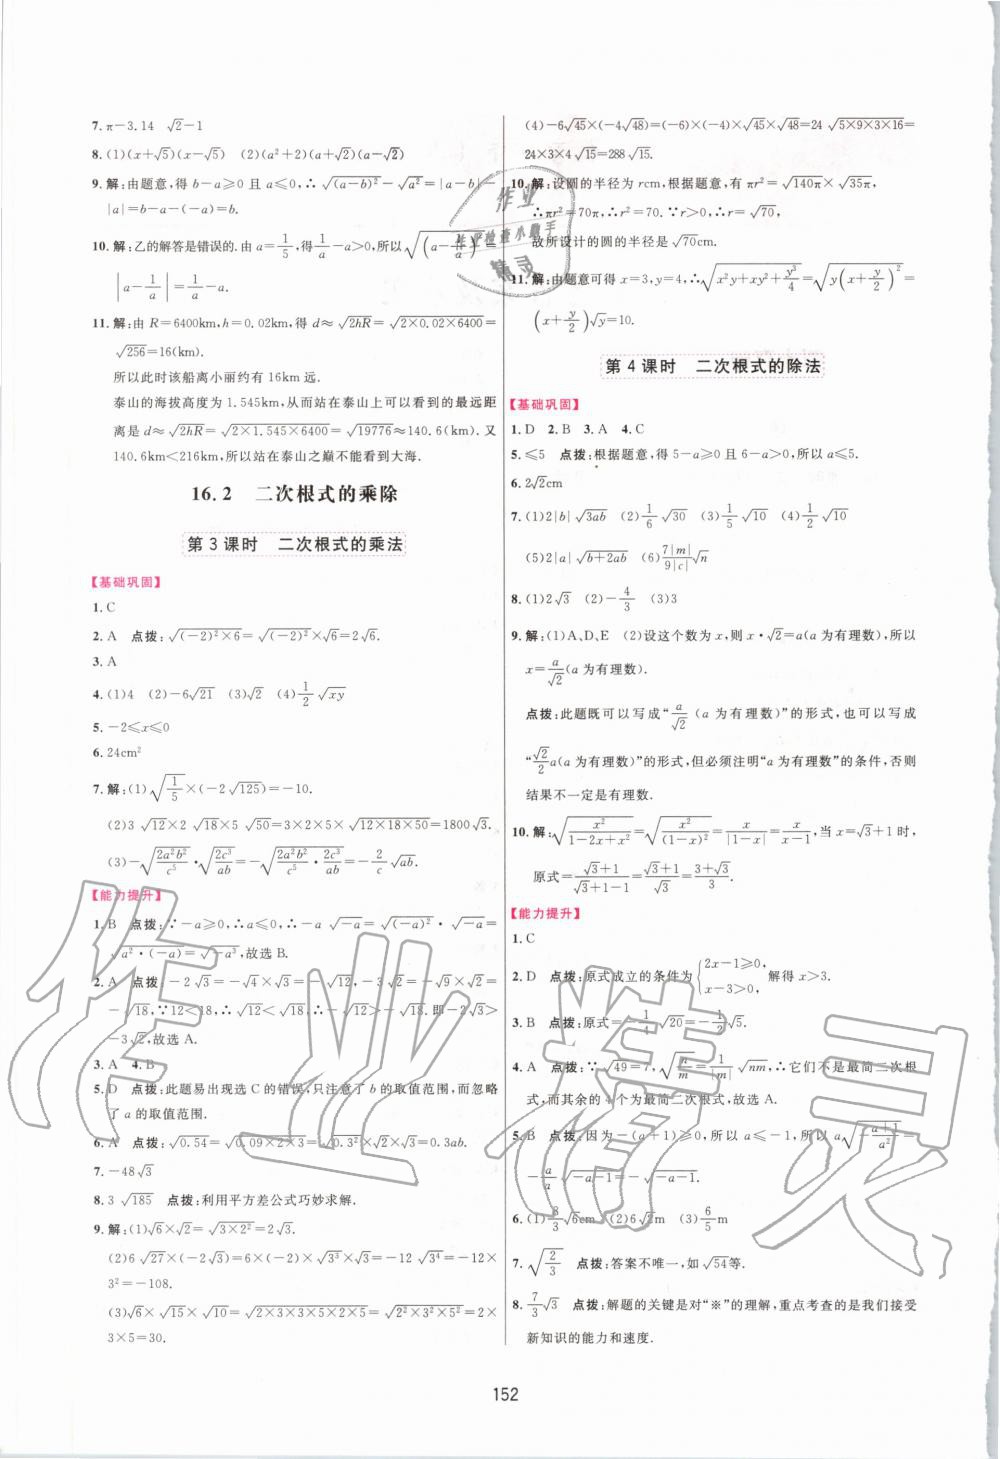 7. π－3.14　√2－1
8. (1)(x＋√5)(x－√5)　(2)(a²＋2)(a＋√2)(a－√2)
9. 解:由题意,得 b－a⩾0 且 a⩽0,∴√(a－b)²－√a²＝|a－b|－
|a|＝b－a－(－a)＝b.
10. 解:乙的解答是错误的.由 a＝1/5,得 1/a－a＞0,所以√(a－1/a)²＝
|a－1/a|＝1/a－a.
11. 解:由 R＝6400km,h＝0.02km,得 d≈√2hR＝√2×0.02×6400＝
√256＝16(km).
所以此时该船离小丽约有 16km 远.
泰山的海拔高度为 1.545km,从而站在泰山上可以看到的最远距
离是 d≈√2hR＝√2×1.545×6400＝√19776≈140.6(km).又
140.6km＜216km,所以站在泰山之巅不能看到大海.
16.2　二次根式的乘除
第 3 课时　二次根式的乘法
【基础巩固】
1. C
2. A　点拨:√(－2)²×6＝√(－2)²×√6＝2√6.
3. A
4. (1)4　(2)－6√21　(3)√2　(4)1/2√xy
5. －2⩽x⩽0
6. 24cm²
7. 解:(1)√1/5×(－2√125)＝－10.
(2)3√12×2√18×5√50＝3×2×5×√12×18×50＝1800√3.
(3)－√2a²b²/c⁵·√2c³/ab＝－√2a²b²/c⁵·2c³/ab＝－2/c√ab.
【能力提升】
1. B　点拨:∵－a⩾0,∴a⩽0,∴－a√－a＝√(－a)²·√－a＝
√a²·(－a)＝√－a³,故选 B.
2. A　点拨:－2√3＝－√4×√3＝－√12,－3√2＝－√9×√2＝
－√18,∵12＜18,∴√12＜√18,∴－√12＞－√18.即－2√3＞
－3√2,故选 A.
3. A　4. B
5. D　点拨:此题易出现选 C 的错误,只注意了 b 的取值范围,而忽略
了 a 的取值范围.
6. A　点拨:√0.54＝√0.09×2×3＝√0.3²×√2×√3＝0.3ab.
7. －48√3
8. 3√185　点拨:利用平方差公式巧妙求解.
9. 解:(1)√6×√2＝√3×2²＝2√3.
(2)6√27×(－2√3)＝6×(－2)×√3³×√3＝－12√3⁴＝－12×
3²＝－108.
(3)√6×√15×√10＝√2×3×3×5×2×5＝√2²×3²×5²＝2×
3×5＝30.
(4)－6√45×(－4√48)＝(－6)×(－4)×√45×√48＝24√5×9×3×16＝
24×3×4√15＝288√15.
10. 解:设圆的半径为 rcm,根据题意,有 πr²＝√140π×√35π,
∴πr²＝70π,∴r²＝70.∵r＞0,∴r＝√70,
故所设计的圆的半径是√70cm.
11. 解:由题意可得 x＝3,y＝4.∴√x²y＋xy²＋y³/4＝√y(x＋y/2)²＝
(x＋y/2)√y＝10.
第 4 课时　二次根式的除法
【基础巩固】
1. D　2. B　3. A　4. C
5. ⩽5　点拨:根据题意,得 5－a⩾0 且 6－a＞0,所以 a⩽5.
6. 2√2cm
7. (1)2|b|√3ab　(2)1/6√30　(3)1/5√10　(4)1/2√10
(5)2|a|√b＋2ab　(6)7|m|/9|c|√n
8. (1)2√3　(2)－4/3　(3)3
9. 解:(1)A、D、E　(2)设这个数为 x,则 x·√2＝a(a 为有理数),所以
x＝a/√2(a 为有理数).
点拨:此题既可以写成“a/√2(a 为有理数)”的形式,也可以写成
“√2/2a(a 为有理数)”的形式,但必须注明“a 为有理数”的条件,否则
结果不一定是有理数.
10. 解:√x²/1－2x＋x²＝√x²/(1－x)²＝x/|1－x|＝x/x－1,当 x＝√3＋1 时,
原式＝√3＋1/√3＋1－1＝√3＋1/√3＝3＋√3/3.
【能力提升】
1. C
2. D　点拨:原式成立的条件为{2x－1⩾0, x－3＞0, 解得 x＞3.
3. B　点拨:原式＝－1/4√20＝－1/2√5.
4. A　点拨:∵√49＝7,√n/m＝1/|m|√nm,∴它们不是最简二次根
式,而其余的 4 个为最简二次根式,故选 A.
5. B　点拨:因为－(a＋1)⩾0,所以 a⩽－1,所以 a√－a＋1/a²＝
－a/a√－a－1＝－√－a－1.
6. (1)8/3√6cm　(2)6√2m　(3)6/5m
7. √2/3　点拨:答案不唯一,如√54等.
8. 7/3√3　点拨:解题的关键是对“※”的理解,重点考查的是我们接受
新知识的能力和速度.
152
作业
作业检查小助手
精灵
作业精灵